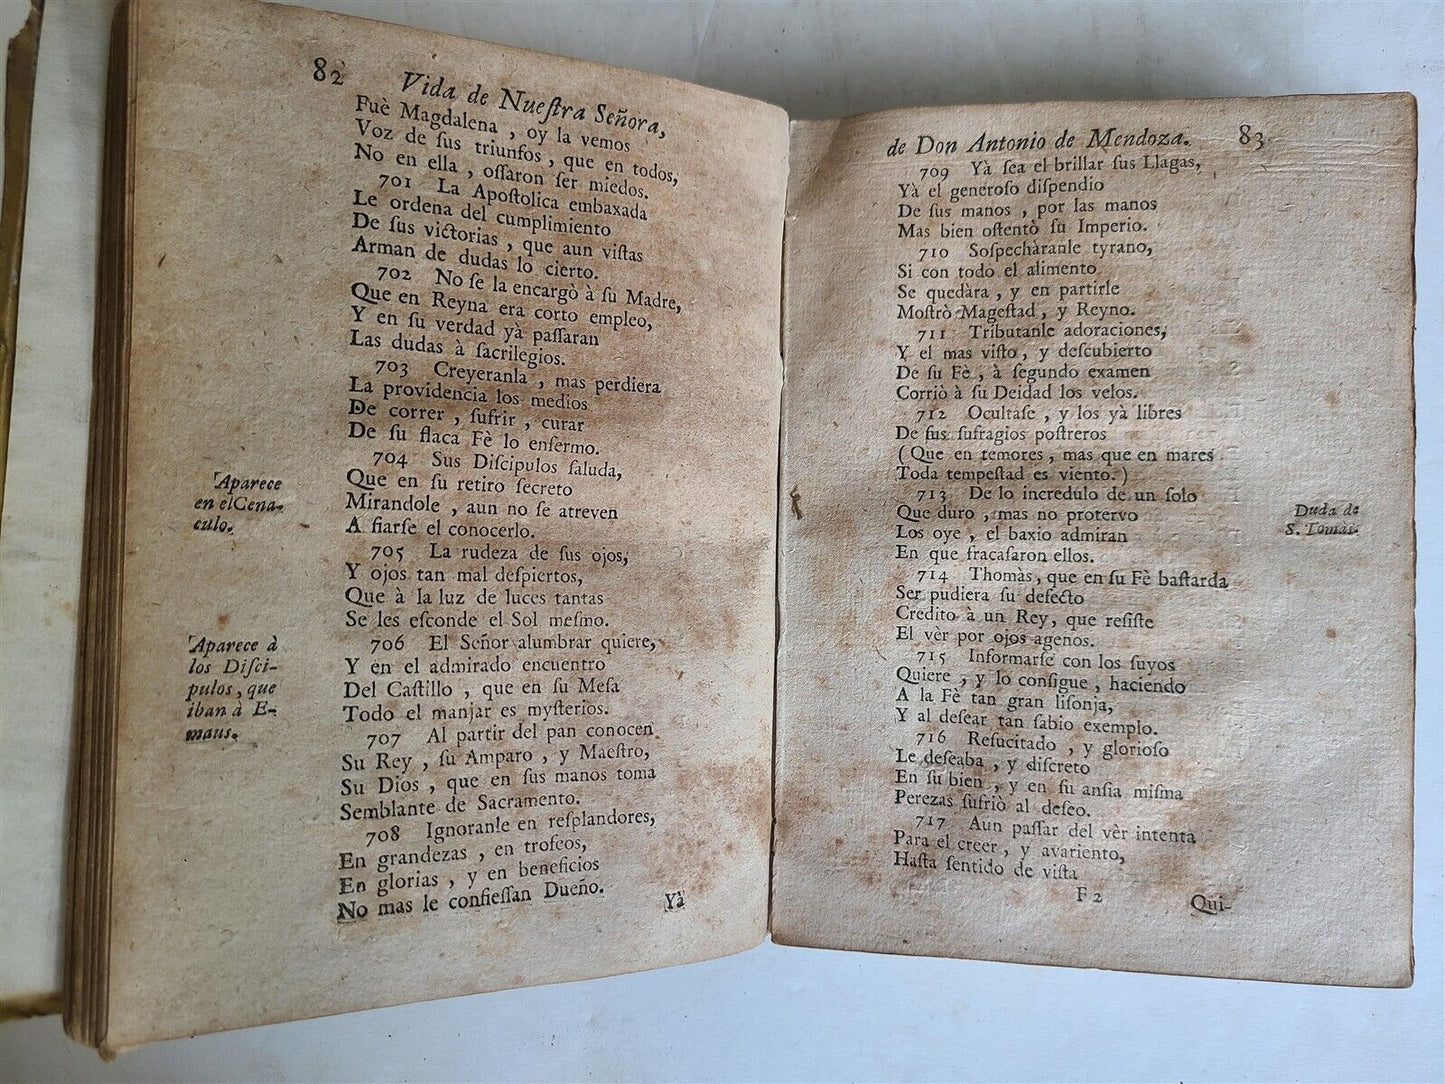 82 Vida de Nueſtra Señora,
Fuè Magdalena , oy la vemos
Voz de ſus triunfos , que en todos,
No en ella , oſſaron ſer miedos.
701 La Apoſtolica embaxada
Le ordena del cumplimiento
De ſus victorias , que aun viſtas
Arman de dudas lo cierto.
702 No ſe la encargò à ſu Madre,
Que en Reyna era corto empleo,
Y en ſu verdad yà paſſaran
Las dudas à ſacrilegios.
703 Creyeranla , mas perdiera
La providencia los medios
De correr , ſufrir , curar
De ſu flaca Fè lo enfermo.
704 Sus Diſcipulos ſaluda,
Que en su retiro ſecreto
Mirandole , aun no ſe atreven
A fiarſe el conocerlo.
Aparece
en el Cena-
culo.
705 La rudeza de ſus ojos,
Y ojos tan mal deſpiertos,
Que à la luz de luces tantas
Se les eſconde el Sol meſmo.
706 El Señor alumbrar quiere,
Y en el admirado encuentro
Del Caſtillo , que en ſu Meſa
Todo el manjar es myſterios.
Aparece à
los Diſci-
pulos, que
iban à E-
maus.
707 Al partir del pan conocen
Su Rey , ſu Amparo , y Maeſtro,
Su Dios , que en ſus manos toma
Semblante de Sacramento.
708 Ignoranle en reſplandores,
En grandezas , en trofeos,
En glorias , y en beneficios
No mas le confieſſan Dueño.
Yà
de Don Antonio de Mendoza. 83
709 Yà ſea el brillar ſus Llagas,
Yà el generoſo diſpendio
De ſus manos , por las manos
Mas bien oſtentò ſu Imperio.
710 Soſpechàranle tyrano,
Si con todo el alimento
Se quedàra , y en partirle
Moſtrò Mageſtad , y Reyno.
711 Tributanle adoraciones,
Y el mas viſto , y deſcubierto
De ſu Fè , à ſegundo examen
Corriò à ſu Deidad los velos.
712 Ocultaſe , y los yà libres
De ſus ſufragios poſtreros
( Que en temores , mas que en mares
Toda tempeſtad es viento. )
713 De lo incredulo de un ſolo
Que duro , mas no protervo
Los oye , el baxio admiran
En que fracaſaron ellos.
Duda de
S. Tomàs.
714 Thomàs, que en ſu Fè baſtarda
Ser pudiera ſu defecto
Credito à un Rey, que reſiſte
El vèr por ojos agenos.
715 Informarſe con los ſuyos
Quiere , y lo conſigue , haciendo
A la Fè tan gran liſonja,
Y al deſear tan ſabio exemplo.
716 Reſucitado , y glorioſo
Le deſeaba , y diſcreto
En ſu bien , y en ſu anſia miſma
Perezas ſufriò al deſeo.
717 Aun paſſar del vèr intenta
Para el creer , y avariento,
Haſta ſentido de viſta
F 2 Qui-